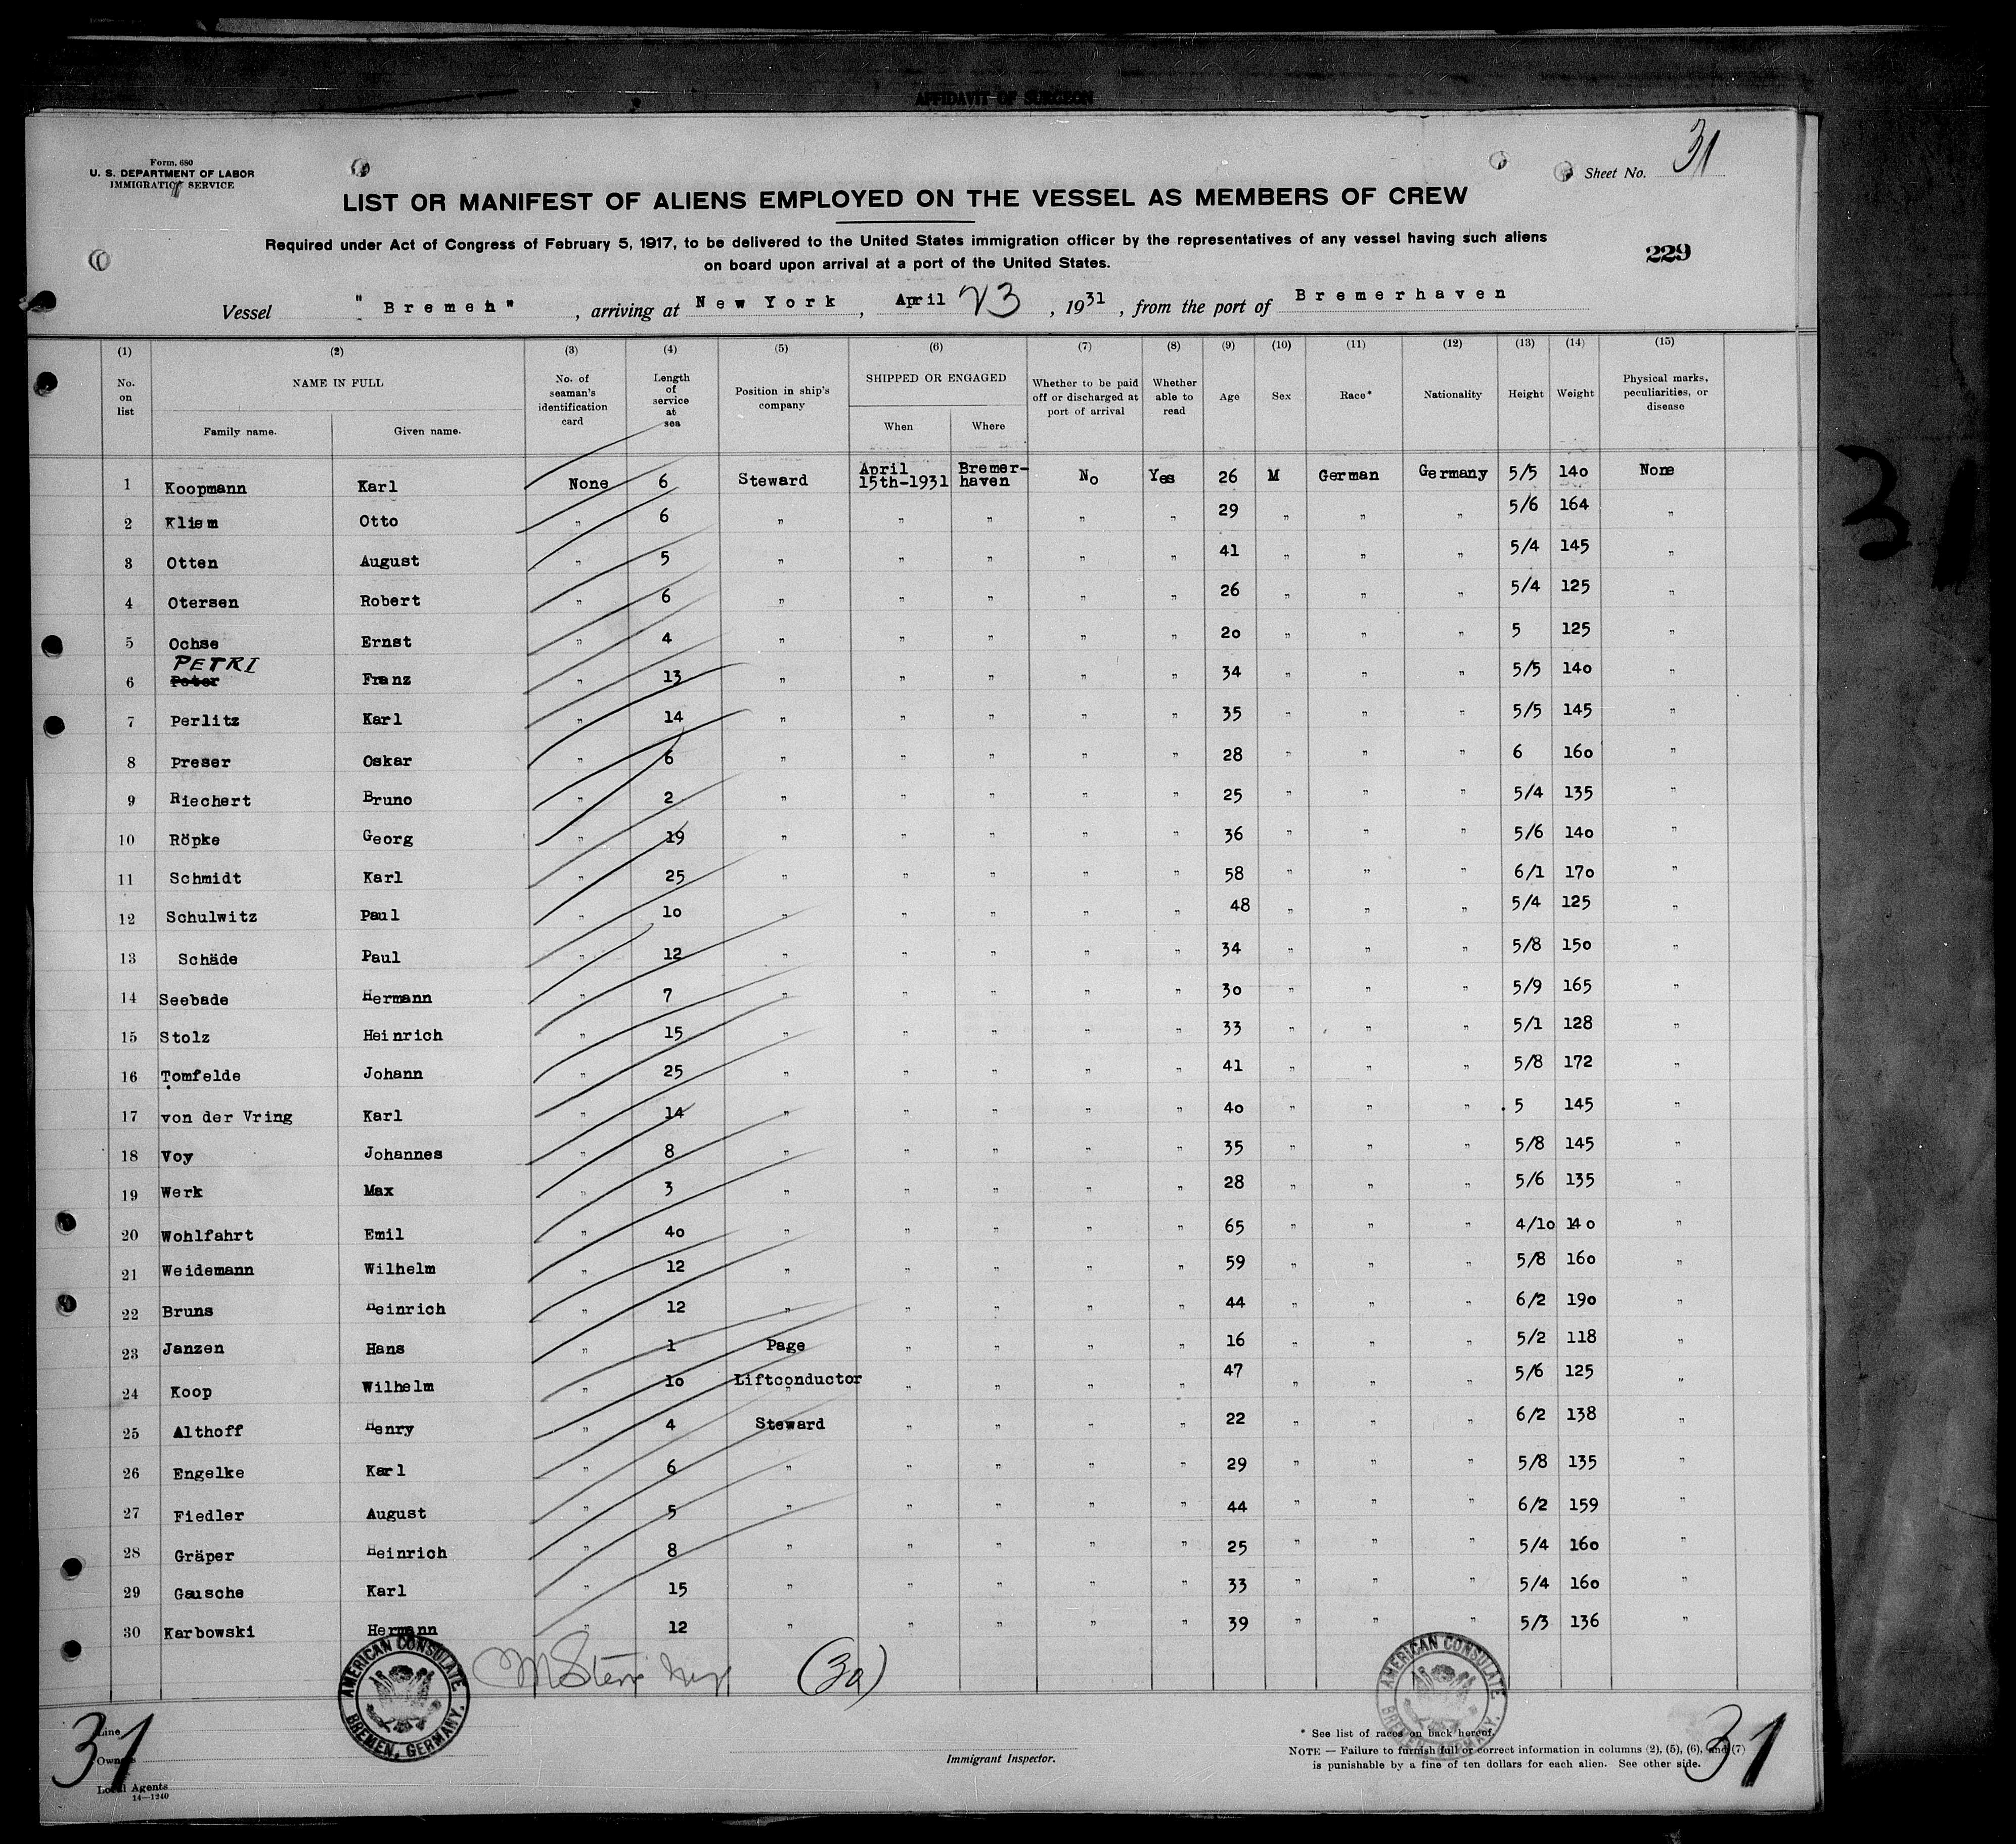 AFFIDAVIT OF SURGEON
Form 680
U. S. DEPARTMENT OF LABOR
IMMIGRATION SERVICE
Sheet No. 31
LIST OR MANIFEST OF ALIENS EMPLOYED ON THE VESSEL AS MEMBERS OF CREW
Required under Act of Congress of February 5, 1917, to be delivered to the United States immigration officer by the representatives of any vessel having such aliens
on board upon arrival at a port of the United States.
229
Vessel "Bremen", arriving at New York, April 23, 1931, from the port of Bremerhaven
(1) (2) (3) (4) (5) (6) (7) (8) (9) (10) (11) (12) (13) (14) (15)
No. on list NAME IN FULL Family name. Given name. No. of seaman's identification card Length of service at sea Position in ship's company SHIPPED OR ENGAGED When Where Whether to be paid off or discharged at port of arrival Whether able to read Age Sex Race* Nationality Height Weight Physical marks, peculiarities, or disease
1 Koopmann Karl None 6 Steward April 15th-1931 Bremer-haven No Yes 26 M German Germany 5/5 140 None
2 Kliem Otto " 6 " " " " " 29 " " " 5/6 164 "
3 Otten August " 5 " " " " " 41 " " " 5/4 145 "
4 Otersen Robert " 6 " " " " " 26 " " " 5/4 125 "
5 Ochse Ernst " 4 " " " " " 20 " " " 5 125 "
PETRI
6 Peter Franz " 13 " " " " " 34 " " " 5/5 140 "
7 Perlitz Karl " 14 " " " " " 35 " " " 5/5 145 "
8 Preser Oskar " 6 " " " " " 28 " " " 6 160 "
9 Riechert Bruno " 2 " " " " " 25 " " " 5/4 135 "
10 Röpke Georg " 19 " " " " " 36 " " " 5/6 140 "
11 Schmidt Karl " 25 " " " " " 58 " " " 6/1 170 "
12 Schulwitz Paul " 10 " " " " " 48 " " " 5/4 125 "
13 Schäde Paul " 12 " " " " " 34 " " " 5/8 150 "
14 Seebade Hermann " 7 " " " " " 30 " " " 5/9 165 "
15 Stolz Heinrich " 15 " " " " " 33 " " " 5/1 128 "
16 Tomfelde Johann " 25 " " " " " 41 " " " 5/8 172 "
17 von der Vring Karl " 14 " " " " " 40 " " " 5 145 "
18 Voy Johannes " 8 " " " " " 35 " " " 5/8 145 "
19 Werk Max " 3 " " " " " 28 " " " 5/6 135 "
20 Wohlfahrt Emil " 40 " " " " " 65 " " " 4/10 140 "
21 Weidemann Wilhelm " 12 " " " " " 59 " " " 5/8 160 "
22 Bruns Heinrich " 12 " " " " " 44 " " " 6/2 190 "
23 Janzen Hans " 1 Page " " " " 16 " " " 5/2 118 "
24 Koop Wilhelm " 10 Liftconductor " " " " 47 " " " 5/6 125 "
25 Althoff Henry " 4 Steward " " " " 22 " " " 6/2 138 "
26 Engelke Karl " 6 " " " " " 29 " " " 5/8 135 "
27 Fiedler August " 5 " " " " " 44 " " " 6/2 159 "
28 Gräper Heinrich " 8 " " " " " 25 " " " 5/4 160 "
29 Gausche Karl " 15 " " " " " 33 " " " 5/4 160 "
30 Karbowski Hermann " 12 " " " " " 39 " " " 5/3 136 "
(30)
AMERICAN CONSULATE BREMEN, GERMANY.
AMERICAN CONSULATE BREMEN, GERMANY.
31
31
31
Line
Owners
Local Agents
14—1240
Immigrant Inspector.
* See list of races on back hereof.
NOTE — Failure to furnish full or correct information in columns (2), (5), (6), and (7)
is punishable by a fine of ten dollars for each alien. See other side.